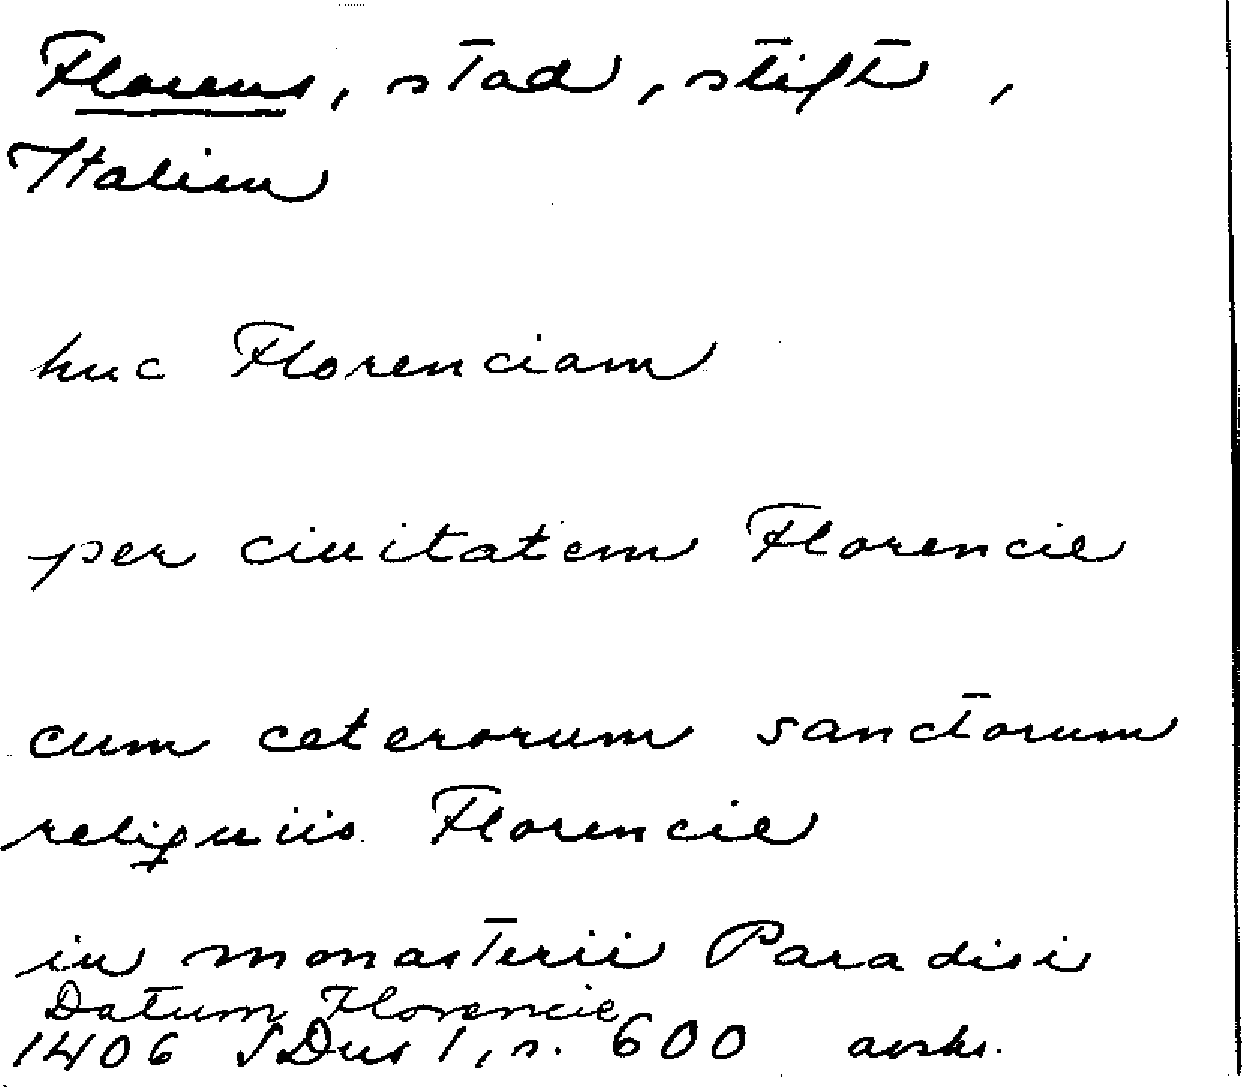 Florens, stad, stift,
Italien
huc Florenciam
per ciuitatem Florencie
cum ceterorum sanctorum
reliquiis Florencie
in monasterii Paradisi
Datum Florencie
1406 SDns 1, s. 600 avskr.